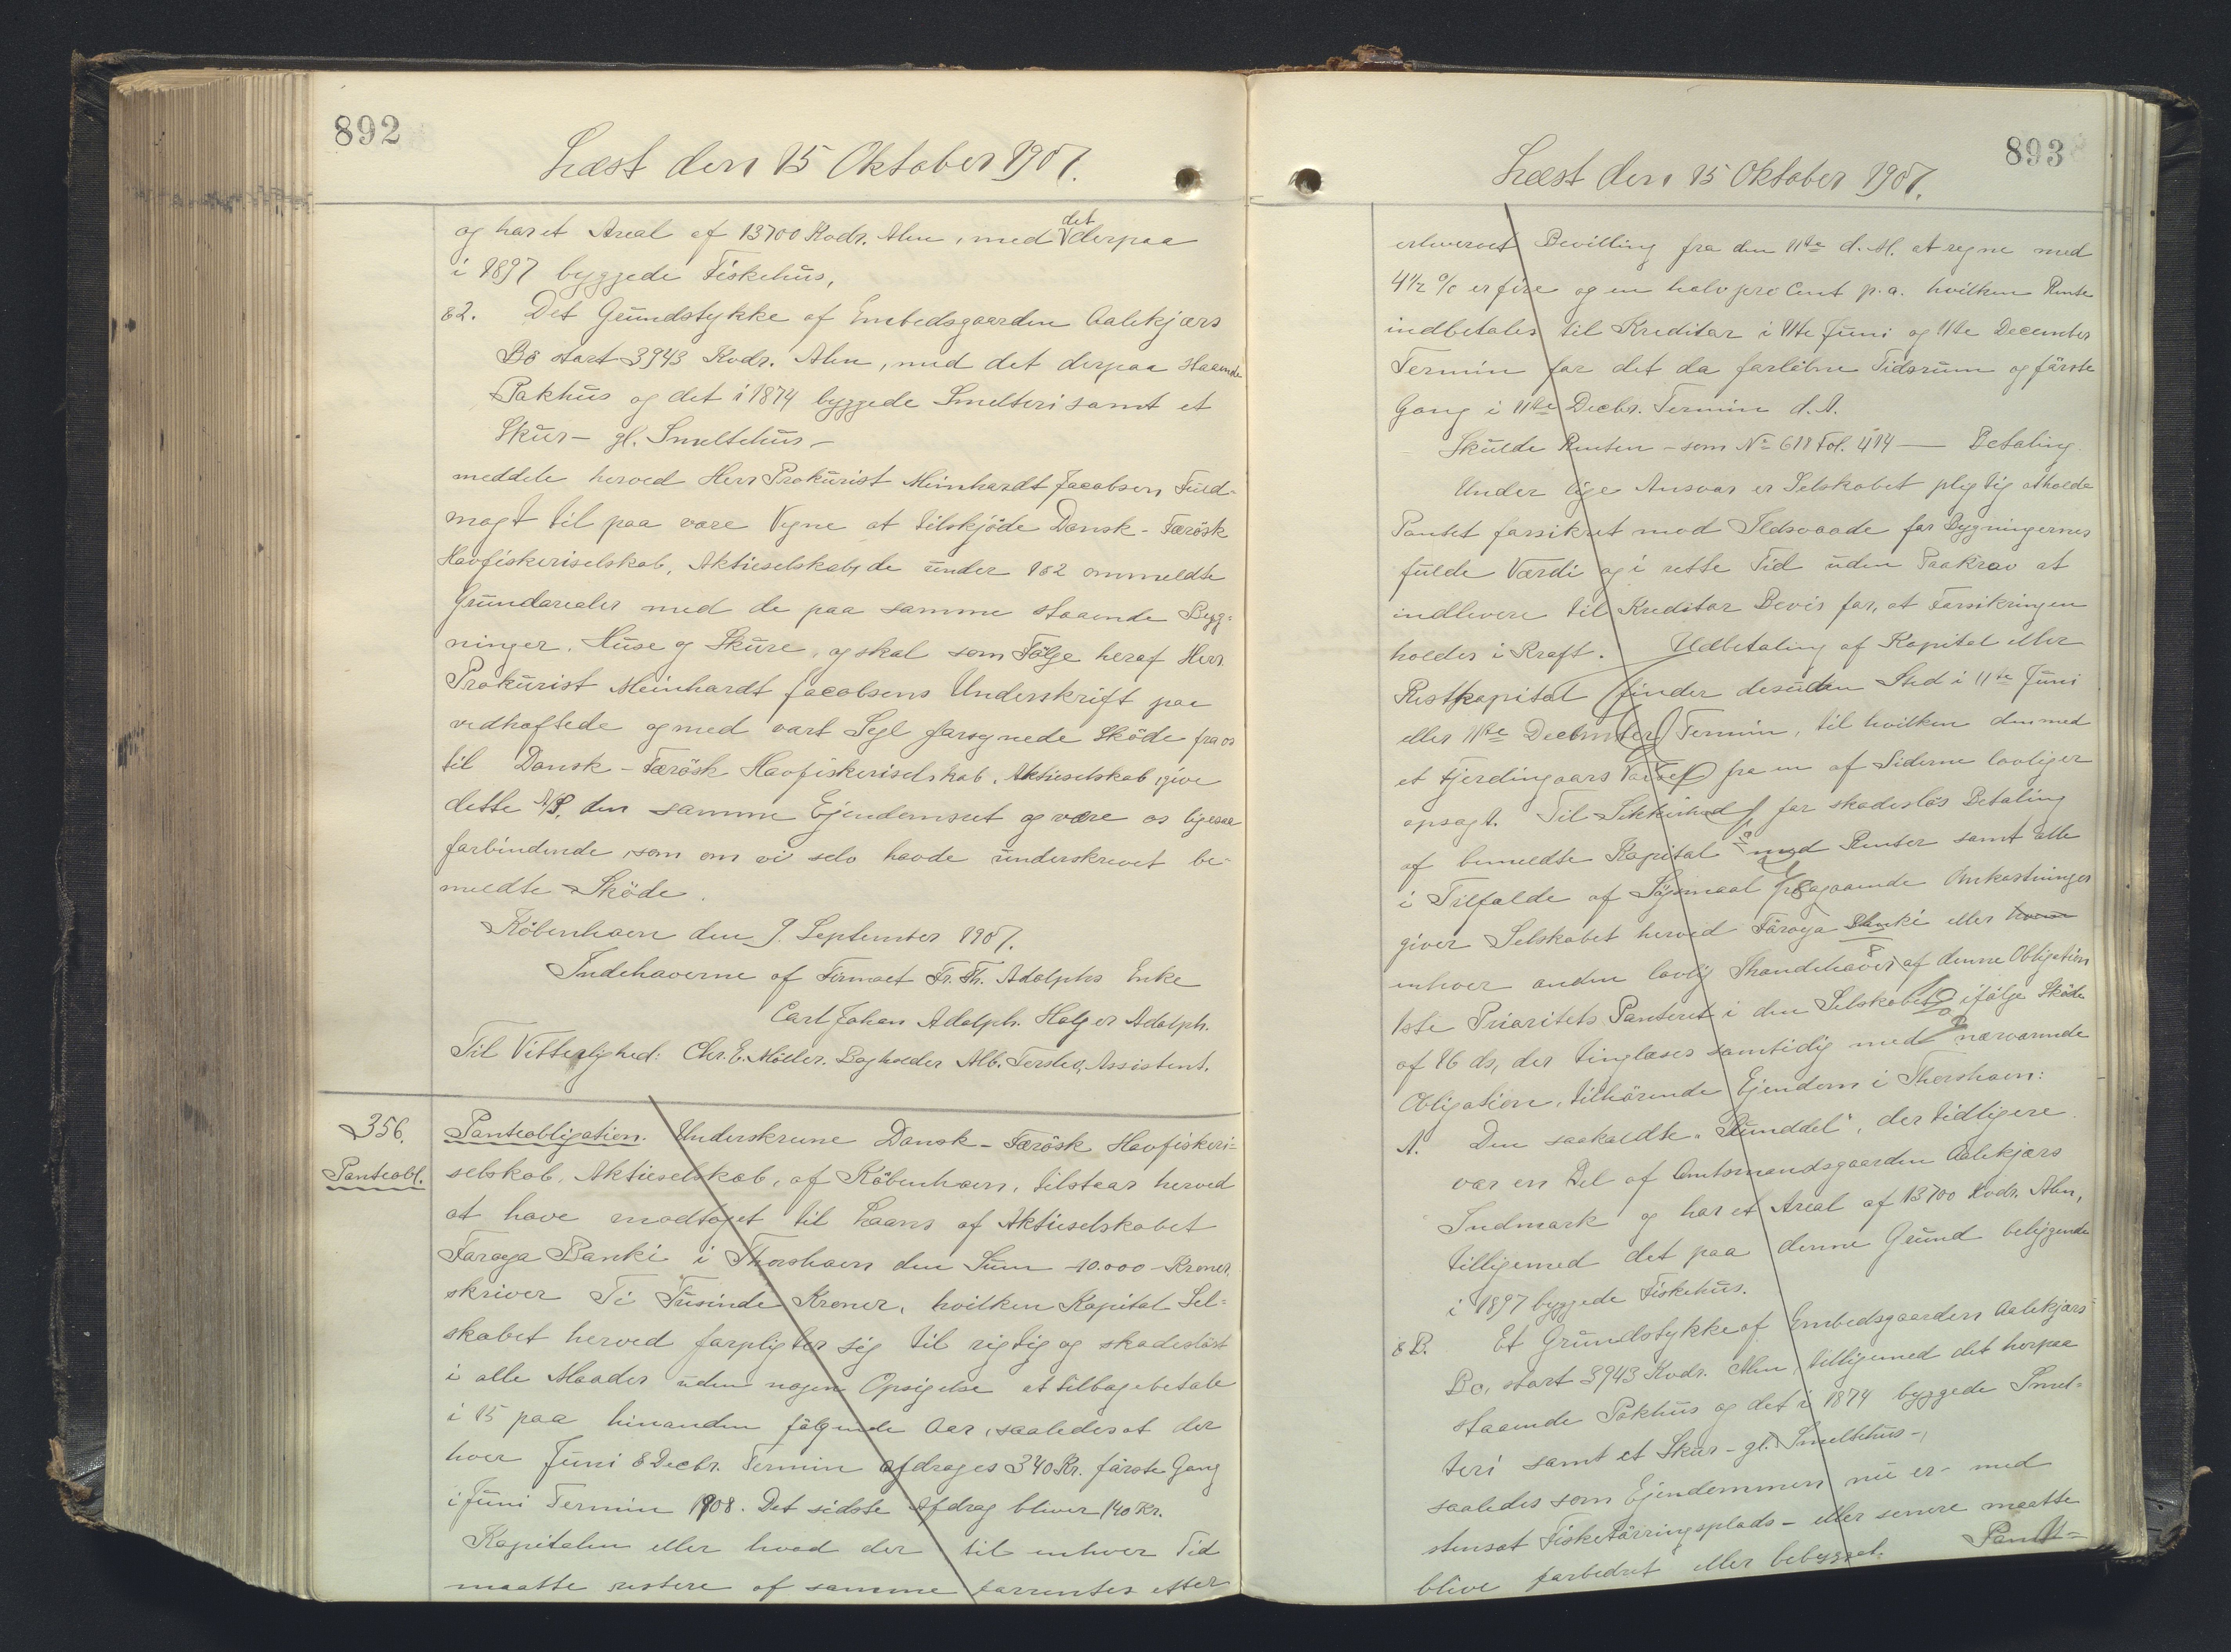 892
Læst den 15 Oktober 1907.
og har et Areal af 13700 Kvdr. Alen, med det derpaa
i 1897 byggede Fiskehus,
& 2. Det Grundstykke af Embedsgaarden Aalekjærs
Bö stort 3943 Kvdr. Alen, med det derpaa staaende
Pakhus og det i 1874 byggede Smelteri samt et
Skur - gl. Smeltehus -
meddele herved Herr Prokurist Meinhardt Jacobsen Fuld-
magt til paa vore Vegne at tilskjöde Dansk-Færösk
Havfiskeriselskab, Aktieselskab, de under 1 & 2 ommeldte
Grundarealer med de paa samme staaende Byg-
ninger, Huse og Skure, og skal som Fölge heraf Herr
Prokurist Meinhardt Jacobsens Underskrift paa
vedhæftede og med vort Segl forsynede Sköde fra os
til Dansk-Færösk Havfiskeriselskab, Aktieselskab, give
dette A/S. den samme Ejendomsret og være os ligesaa
forbindende, som om vi selv havde underskrevet be-
meldte Sköde.
Köbenhavn den 9. September 1907.
Indehaverne af Firmaet Fr. Th. Adolphs Enke
Carl Johan Adolph. Holger Adolph.
Til Vitterlighed: Chr. E. Möller. Bogholder Alb. Terslev, Assistent.
356.
Panteobl.
Panteobligation. Underskrevne Dansk-Færösk Havfiskeri-
selskab, Aktieselskab, af Köbenhavn, tilstaar herved
at have modtaget til Laans af Aktieselskabet
Faroya Banki i Thorshavn den Sum 10.000 Kroner,
skriver Ti Tusinde Kroner, hvilken Kapital Sel-
skabet herved forpligter sig til rigtig og skadeslöst
i alle Maader uden nogen Opsigelse at tilbagebetale
i 15 paa hinanden fölgende Aar, saaledes at der
hver Juni & Decbr. Termin afdrages 340 Kr. förste Gang
i Juni Termin 1908. Det sidste Afdrag bliver 140 Kr.
Kapitalen eller hvad der til enhver Tid
maatte restere af samme forrentes efter
893
Læst den 15 Oktober 1907.
erhvervet Bevilling fra den 11te d. M. at regne med
4 1/2 % er fire og en halv pro Cent p.a. hvilken Rente
indbetales til Kreditor i 11te Juni og 11te December
Termin for det da forlöbne Tidsrum og förste
Gang i 11te Decbr. Termin d. A.
Skulde Renten - som No 618 Fol. 414 - Betaling.
Under lige Ansvar er Selskabet pligtig at holde
Pantet forsikret mod Ildsvaade for Bygningernes
fulde Værdi og i rette Tid uden Paakrav at
indlevere til Kreditor Bevis for, at Forsikringen
holdes i Kraft. Udbetaling af Kapital eller
Restkapital finder desuden Sted i 11te Juni
eller 11te December Termin, til hvilken den med
et Fjerdingaars Varsel fra en af Siderne lovliger
opsagt. Til Sikkerhed for skadeslös Betaling
af bemeldte Kapital med Renter samt alle
i Tilfælde af Sögsmaal paagaaende Omkostninger
giver Selskabet herved Föroya Banki eller
enhver anden lovlig Ihændehaver af denne Obligation
1ste Prioritets Panteret i den Selskabet ifölge Sköde
af 26 ds, der tinglæses samtidig med nærværende
Obligation, tilhörende Ejendom i Thorshavn:
A. Den saakaldte "Runddel", der tidligere
var en Del af Amtsmandsgaarden Aalekjærs
Indmark og har et Areal af 13700 Kvdr. Alen,
tilligemed det paa denne Grund beliggende
i 1897 byggede Fiskehus.
& B. Et Grundstykke af Embedsgaarden Aalekjærs
Bö, stort 3943 Kvdr. Alen, tilligemed det herpaa
staaende Pakhus og det i 1874 byggede Smel-
teri samt et Skur - gl. Smeltehus -,
saaledes som Ejendommen nu er - med
stensat Fisketörringsplads - eller senere maatte
blive forbedret eller bebygget. Pant-